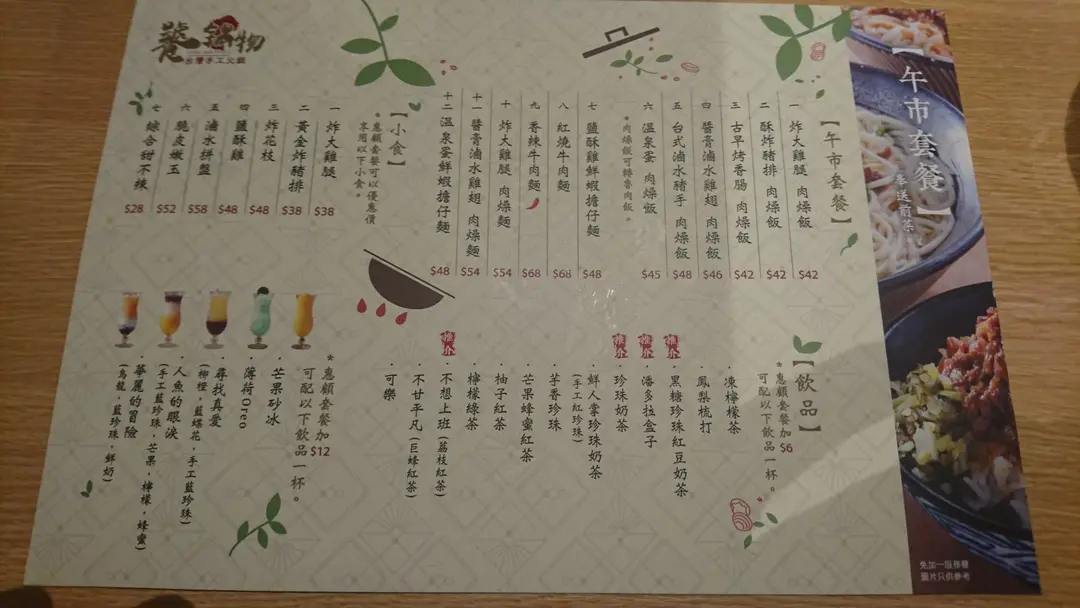 【午市套餐】
套送前菜
【午市套餐】
一 炸大雞腿 肉燥飯 $42
二 酥炸豬排 肉燥飯 $42
三 古早烤香腸 肉燥飯 $42
四 醬膏滷水雞翅 肉燥飯 $46
五 台式滷水豬手 肉燥飯 $48
六 溫泉蛋 肉燥飯 $45
*肉燥飯可轉魯肉飯。
七 鹽酥雞鮮蝦擔仔麵 $48
八 紅燒牛肉麵 $68
九 香辣牛肉麵 $68
十 炸大雞腿 肉燥麵 $54
十一 醬膏滷水雞翅 肉燥麵 $54
十二 溫泉蛋鮮蝦擔仔麵 $48
【小食】
*惠顧套餐可以優惠價
享用以下小食。
一 炸大雞腿 $38
二 黃金炸豬排 $38
三 炸花枝 $48
四 鹽酥雞 $48
五 滷水拼盤 $58
六 脆皮嫩玉 $52
七 綜合甜不辣 $28
鍋物
台灣手工火鍋
【飲品】
*惠顧套餐加$6
可配以下飲品一杯。
·凍檸檬茶
·鳳梨梳打
推介
·黑糖珍珠紅豆奶茶
推介
·潘多拉盒子
推介
·珍珠奶茶
·鮮人掌珍珠奶茶
(手工紅珍珠)
·芋香珍珠
·芒果蜂蜜紅茶
·柚子紅茶
·檸檬綠茶
推介
·不想上班(荔枝紅茶)
·不甘平凡(巨蜂紅茶)
·可樂
*惠顧套餐加$12
可配以下飲品一杯。
·芒果砂冰
·薄荷Oreo
·尋找真愛
(柳橙，藍蝶花，手工藍珍珠)
·人魚的眼淚
(手工藍珍珠，芒果，檸檬，蜂蜜)
·華麗的冒險
(烏龍，藍珍珠，鮮奶)
免加一服務費
圖片只供參考